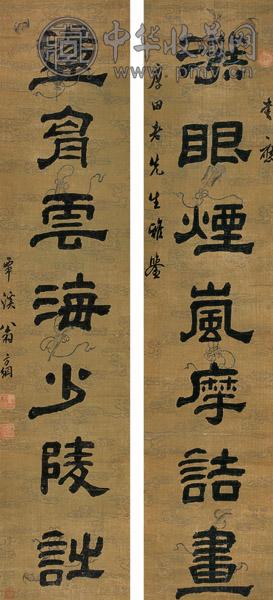 眼煙嵐摩詰畫
書應
厚田老先生雅鑒
胷雲海少陵詩
覃溪翁方綱
中华收藏网